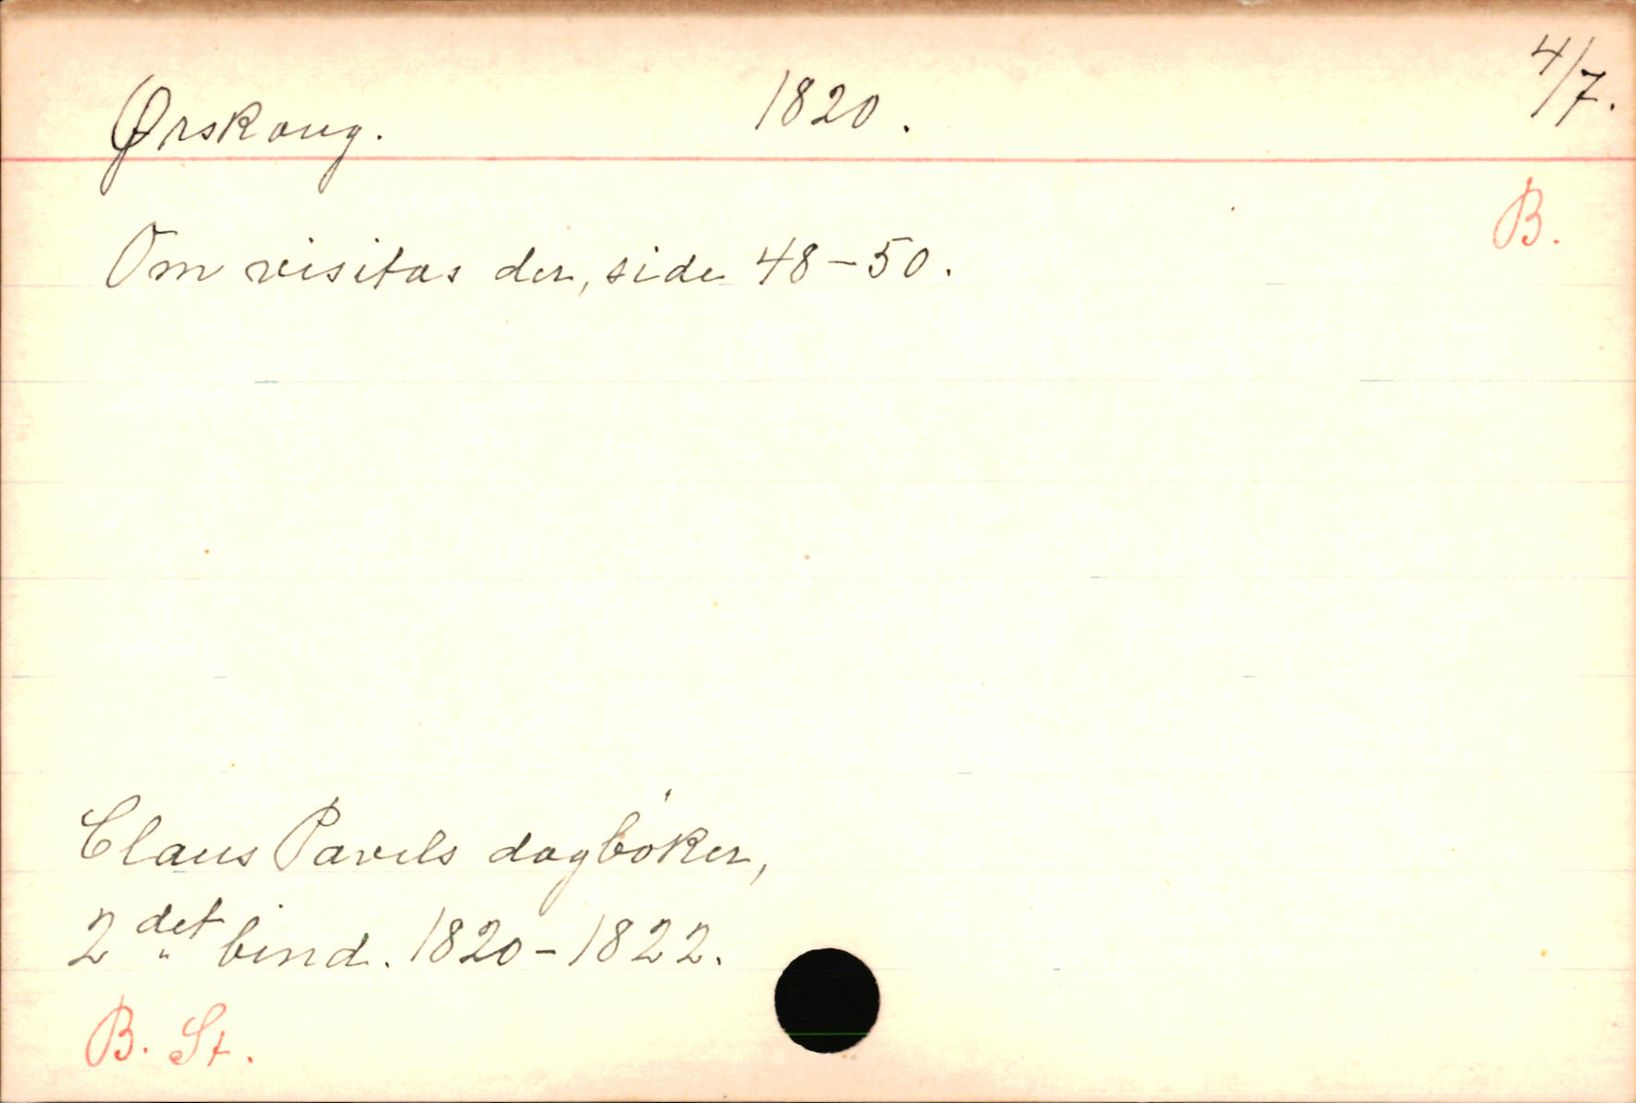 Ørskoug. 1820. 4/7.
B.
Om visitas der, side 48-50.
Claus Pavels dagbóker,
2det bind. 1820-1822.
B. St.